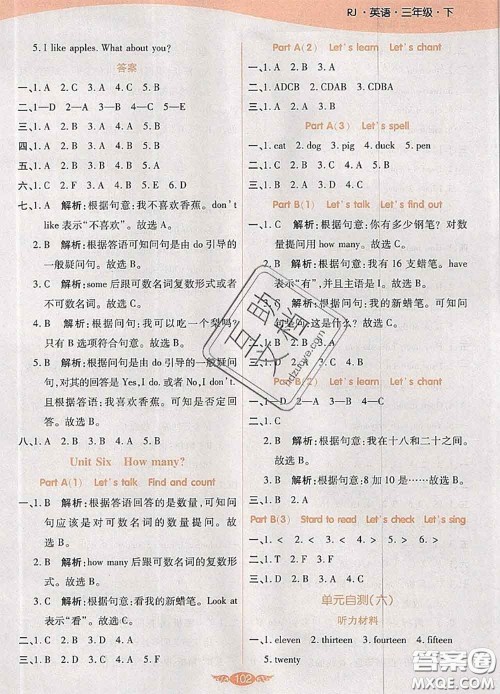 RJ·英语·三年级·下
5. I like apples. What about you?
答案
一、1. C 2. C 3. A 4. C 5. B
二、1—D 2—A 3—C 4—B 5—E
三、1. A 2. B 3. A 4. B 5. A
四、1. B 2. B 3. A 4. A 5. B
五、1. B 2. A 3. A 4. B 5. B
六、1. C 2. F 3. A 4. D 5. B
七、1. A 解析:根据句意:我不喜欢香蕉。don't
like 表示“不喜欢”。故选 A。
2. B 解析:根据答语可知问句是由 do 引导的
一般疑问句。故选 B。
3. B 解析:some 后跟可数名词复数形式或者
不可数名词。故选 B。
4. B 解析:根据句意:我可以吃一个梨吗?
只有 B 选项符合句意。故选 B。
5. B 解析:根据问句是由 do 引导的一般疑问
句,对其的回答是 Yes, I do. 或者 No, I don't.
且根据句意:我喜欢香蕉。可知是否定回
答。故选 B。
八、1. B 2. A 3. A 4. A 5. B
Unit Six How many?
Part A(1) Let's talk Find and count
一、1. B 解析:根据答语回答的是数量,可知问
句应该是对可数名词的数量提问。故选 B。
2. B 解析:how many 后跟可数名词的复数形
式。故选 B。
3. A 解析:根据句意:看我的新蜡笔。Look at
表示“看”。故选 A。
二、1. C 2. D 3. B 4. A
三、1. B 2. A 3. A 4. B 5. B
Part A(2) Let's learn Let's chant
一、1. D 2. C 3. A 4. B
二、1. ADCB 2. CDAB 3. CDBA
三、1. A 2. B 3. A
Part A(3) Let's spell
一、1. cat 2. dog 3. pig 4. duck 5. pen
二、1. C 2. D 3. B 4. A
Part B(1) Let's talk Let's find out
一、1. C 解析:根据句意:你有多少钢笔? 对数
量提问用 how many。故选 C。
2. B 解析:根据句意:我有 16 支蜡笔。have
表示“有”,并且主语是 I。故选 B。
3. B 解析:根据句意:我的新蜡笔。可知
问句是:这是什么? 故选 B。
二、1. C 2. D 3. B 4. A
三、1. B 2. A
Part B(2) Let's learn Let's chant
一、1—D 2—A 3—B 4—C
二、1. C
2. B 解析:根据句意:我在十八和二十之间。
可知选 B。
3. B 解析:根据句意:8 加 10 是……故选 B。
三、1. B 2. A
Part B(3) Start to read Let's check Let's sing
一、1. < 2. > 3. < 4. > 5. <
二、1. C 2. D 3. B 4. A
三、1. A 2. A 3. B 4. B 5. A
单元自测(六)
听力材料
一、1. eleven 2. thirteen 3. fourteen 4. fifteen
5. twenty
102
互助文档
hdzuoye.com
答案圈
MXQE.COM